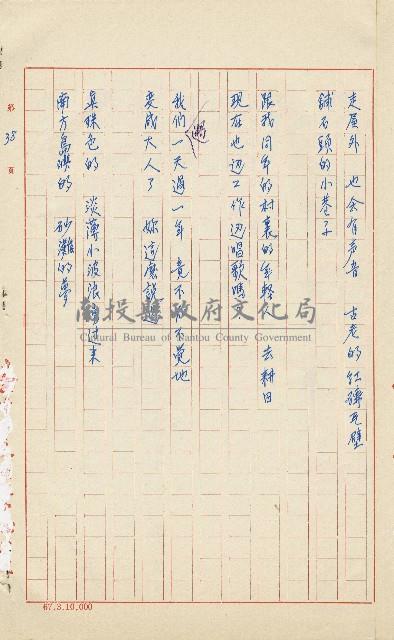 走屋外 也会有声音 古老的红磚瓦壁
舖石頭的小巷子
跟我同年的村裏的年輕 去耕田
現在也边工作边唱歌嗎
我们一天過一年 竟不 不覺地
過
变成大人了 妳這麽說
真珠色的 淡薄小波浪 过来
南方島嶼的 砂灘的夢
第 38 頁
南投縣政府文化局
Cultural Bureau of Nantou County Government
67.3.10,000